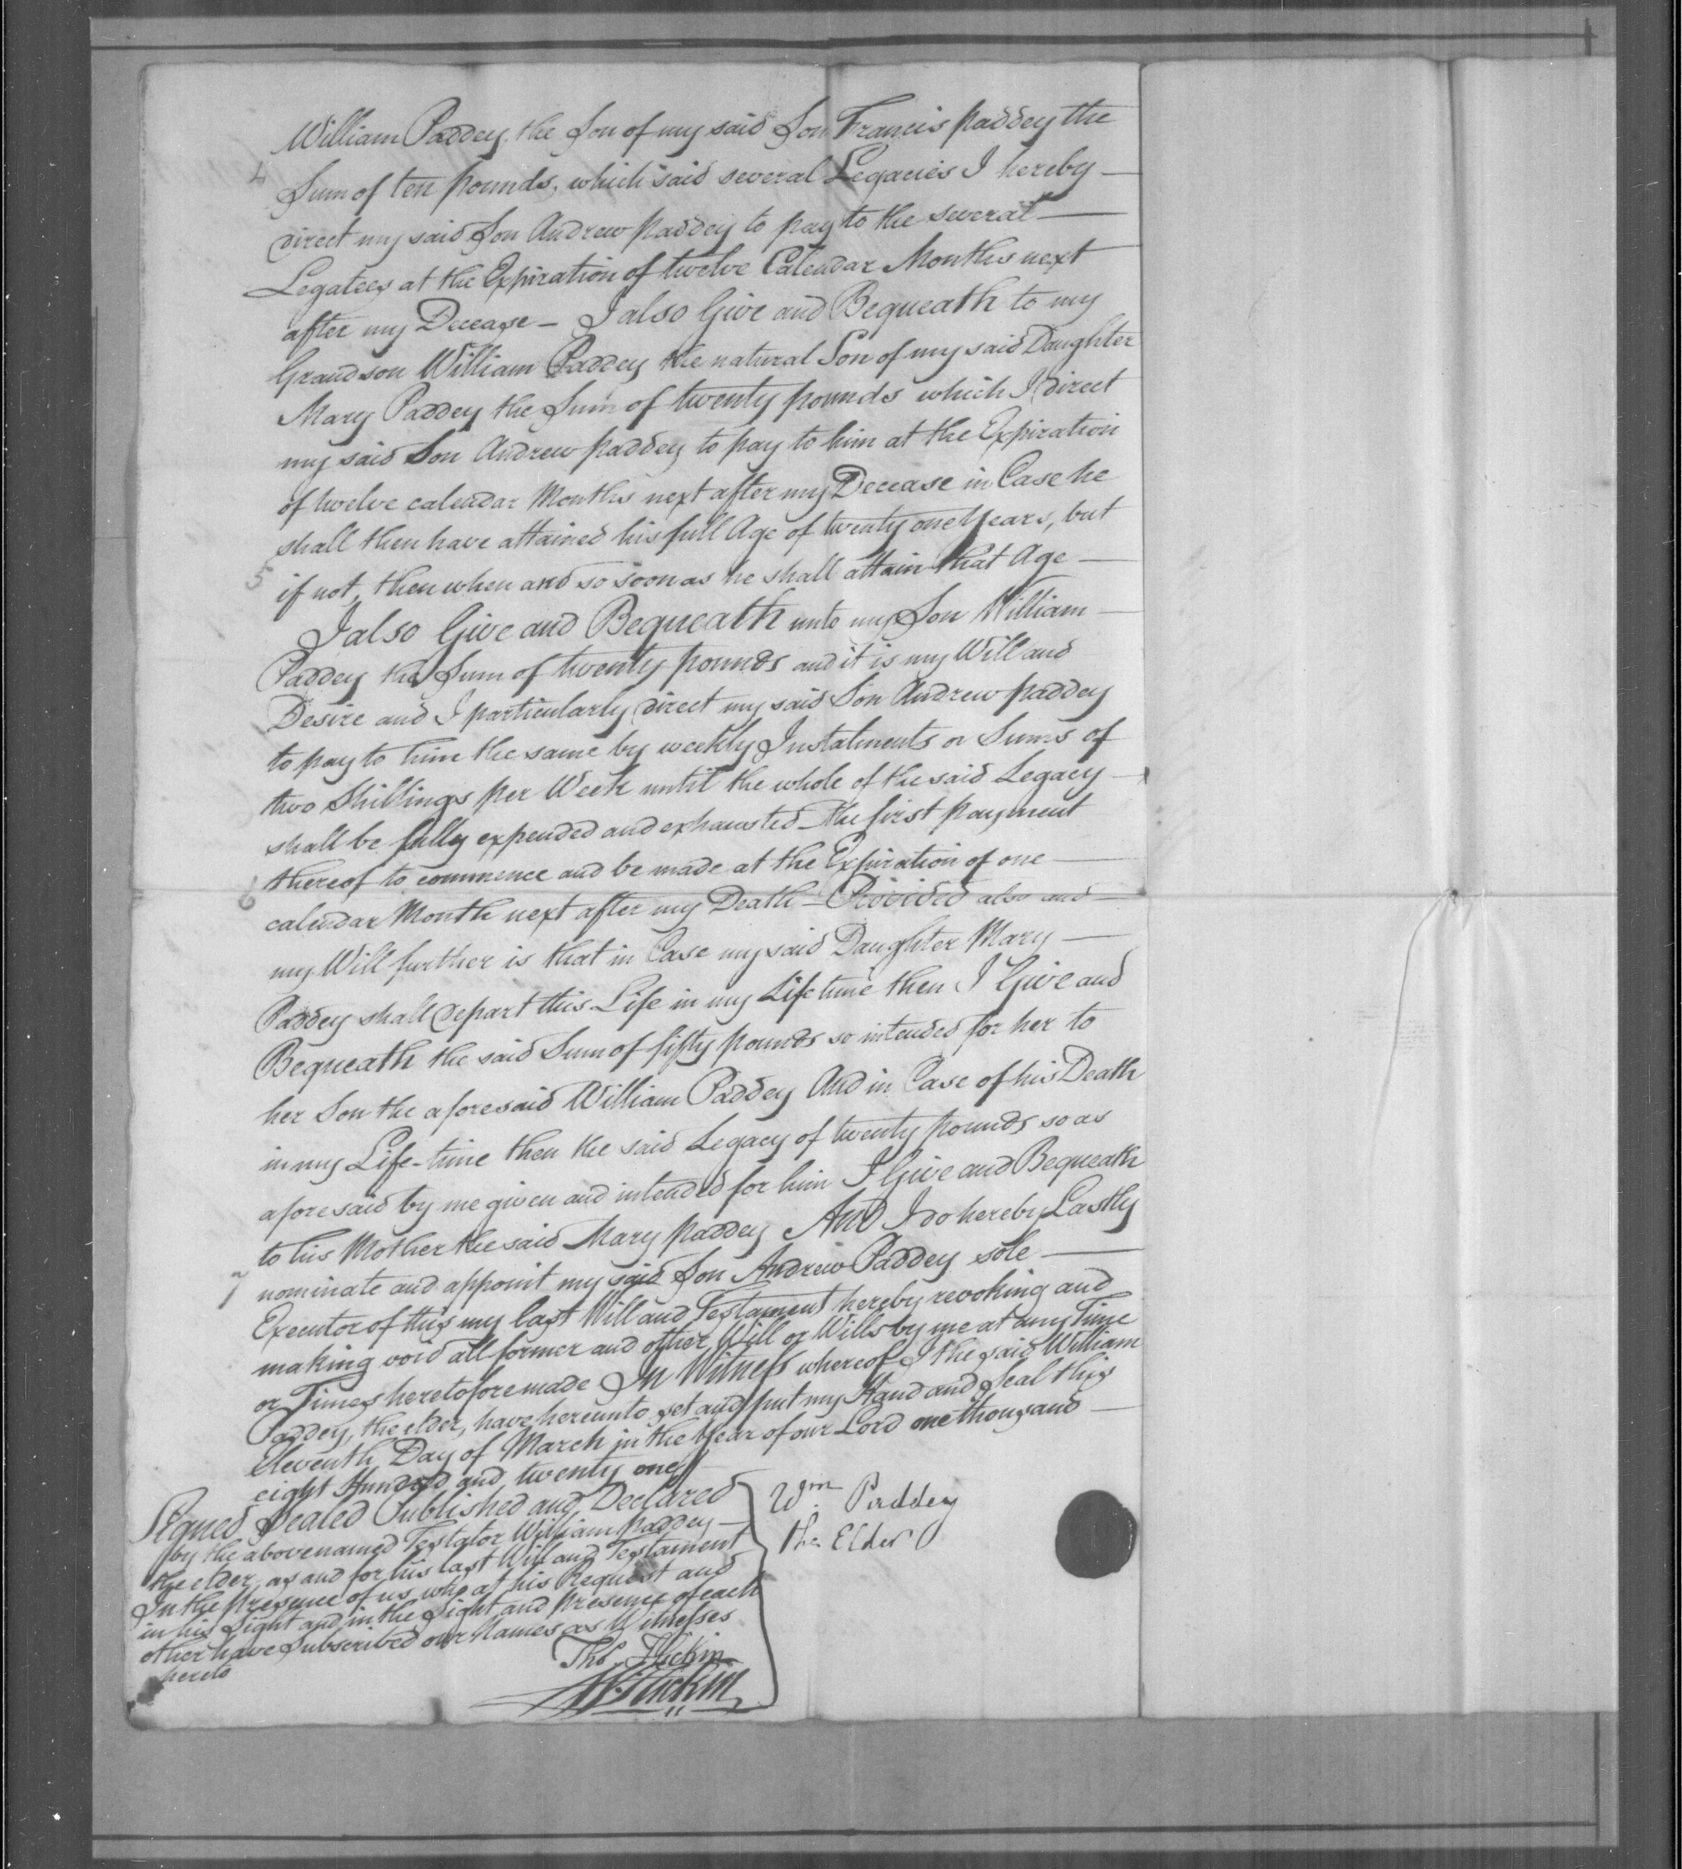 William Paddey the Son of my said Son Francis paddey the
4
Sum of ten pounds, which said several Legacies I hereby —
direct my said Son Andrew paddey to pay to the several —
Legatees at the Expiration of twelve Calendar Months next
after my Decease — I also Give and Bequeath to my
Grandson William Paddey the natural Son of my said Daughter
Mary Paddey the Sum of twenty pounds which I direct
my said Son Andrew paddey to pay to him at the Expiration
of twelve calendar Months next after my Decease in Case he
shall then have attained his full Age of twenty one Years, but
5
if not, then when and so soon as he shall attain that Age —
I also Give and Bequeath unto my Son William —
Paddey the Sum of twenty pounds and it is my Will and
Desire and I particularly direct my said Son Andrew paddey
to pay to him the same by weekly Instalments or Sums of
two Shillings per Week until the whole of the said Legacy —
shall be fully expended and exhausted — the first payment
thereof to commence and be made at the Expiration of one —
6
calendar Month next after my Death — Provided also and —
my Will further is that in Case my said Daughter Mary —
Paddey shall depart this Life in my Life time then I Give and
Bequeath the said Sum of fifty pounds so intended for her to
her Son the aforesaid William Paddey And in Case of his Death
in my Life-time then the said Legacy of twenty pounds so as
aforesaid by me given and intended for him I Give and Bequeath
to his Mother the said Mary paddey And I do hereby Lastly
7
nominate and appoint my said Son Andrew Paddey sole —
Executor of this my last Will and Testament hereby revoking and
making void all former and other Will or Wills by me at any Time
or Times heretofore made In Witness whereof I the said William
Paddey, the elder, have hereunto set and put my Hand and Seal this
Eleventh Day of March in the Year of our Lord one thousand —
eight Hundred and twenty one
Signed Sealed Published and Declared
by the abovenamed Testator William paddey —
the elder, as and for his last Will and Testament
In the presence of us, who at his Request and
in his Sight and in the Sight and presence of each
other have Subscribed our Names as Witnesses
hereto
Wm Paddey
the Elder
Thos